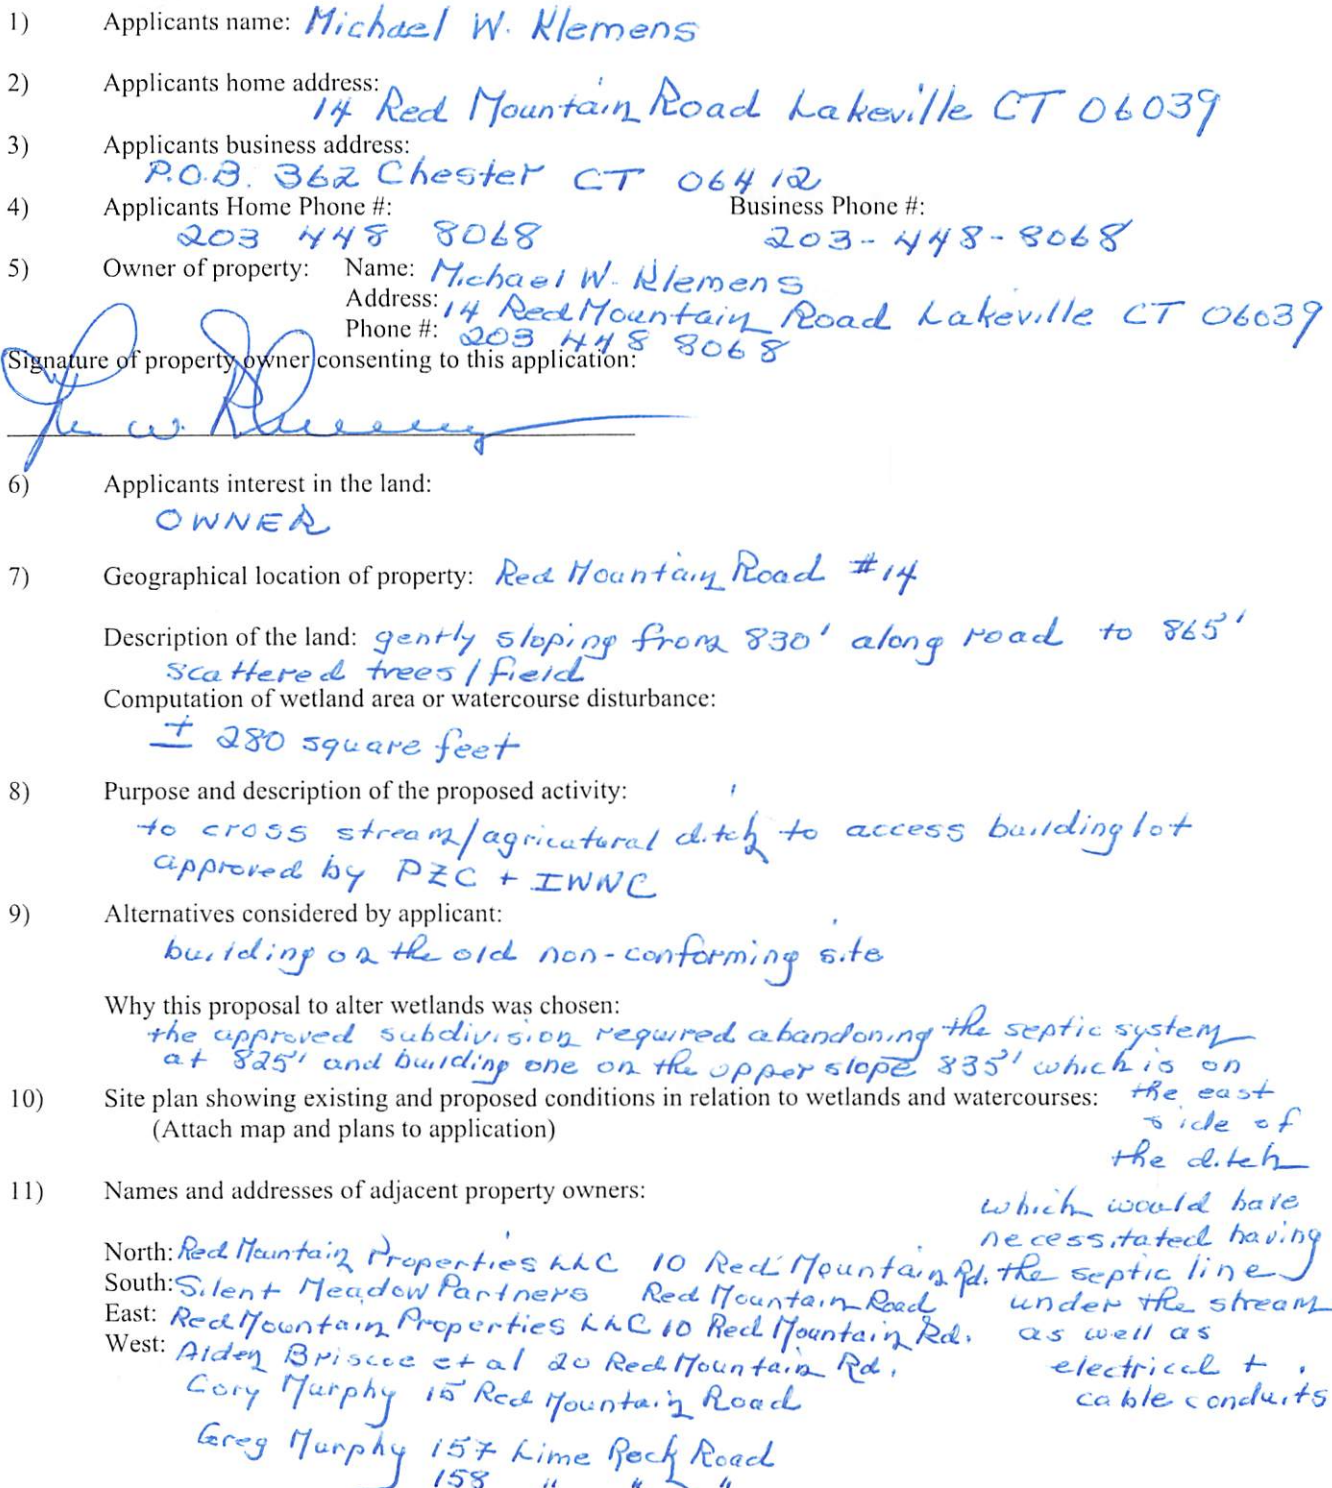 1) Applicants name: Michael W. Klemens
2) Applicants home address:
14 Red Mountain Road Lakeville CT 06039
3) Applicants business address:
P.O.B. 362 Chester CT 06412
4) Applicants Home Phone #: Business Phone #:
203 448 8068 203-448-8068
5) Owner of property: Name: Michael W. Klemens
Address: 14 Red Mountain Road Lakeville CT 06039
Phone #: 203 448 8068
Signature of property owner consenting to this application:
6) Applicants interest in the land:
OWNER
7) Geographical location of property: Red Mountain Road #14
Description of the land: gently sloping from 830' along road to 865'
scattered trees/field
Computation of wetland area or watercourse disturbance:
± 280 square feet
8) Purpose and description of the proposed activity:
to cross stream/agricultural ditch to access building lot
approved by PZC + IWWC
9) Alternatives considered by applicant:
building on the old non-conforming site
Why this proposal to alter wetlands was chosen:
the approved subdivision required abandoning the septic system
at 825' and building one on the upper slope 835' which is on
the east
side of
the ditch
which would have
necessitated having
the septic line
under the stream
as well as
electrical +
cable conduits
10) Site plan showing existing and proposed conditions in relation to wetlands and watercourses:
(Attach map and plans to application)
11) Names and addresses of adjacent property owners:
North: Red Mountain Properties LLC 10 Red Mountain Rd.
South: Silent Meadow Partners Red Mountain Road
East: Red Mountain Properties LLC 10 Red Mountain Rd.
West: Alden Briscoe et al 20 Red Mountain Rd.
Cory Murphy 15 Red Mountain Road
Greg Murphy 157 Lime Rock Road
158 " " "